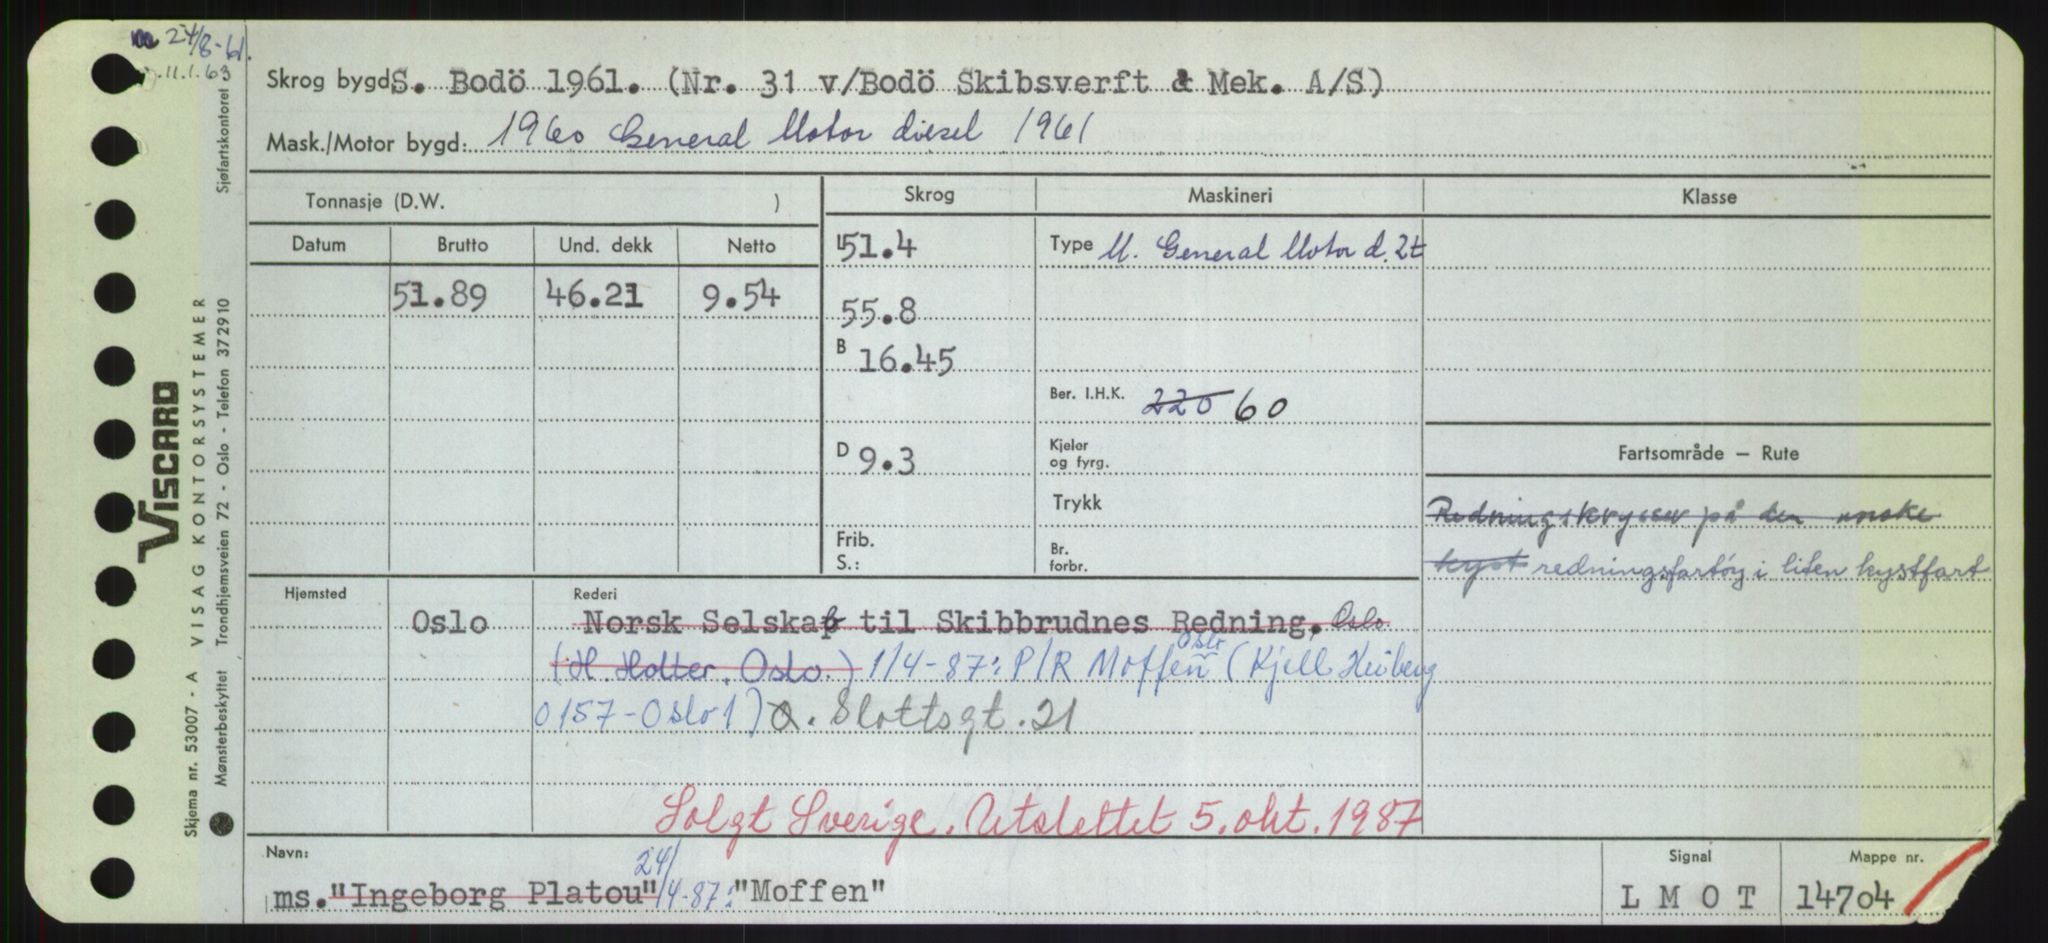 24/8-61.
11.1.63
Skrog bygd S. Bodö 1961. (Nr. 31 v/Bodö Skibsverft & Mek. A/S)
Mask./Motor bygd: 1960 General Motor diesel 1961
Tonnasje (D.W. )
Skrog
Maskineri
Klasse
Datum
Brutto
Und. dekk
Netto
L 51.4
Type M. General Motor d. 2t
51.89
46.21
9.54
55.8
B 16.45
Ber. I.H.K. 220 60
D 9.3
Kjeler
og fyrg.
Fartsområde – Rute
Trykk
Redningskrysser på den norske
Frib.
S.:
Br.
forbr.
kyst redningsfartøy i liten kystfart
Hjemsted
Rederi
Oslo
Norsk Selskab til Skibbrudnes Redning, Oslo
(H. Holter, Oslo.) 1/4-87: P/R Moffen Oslo (Kjell Heiberg
0157-Oslo 1) Ø. Slottsgt. 21
Solgt Sverige. Utslettet 5. okt. 1987
Navn:
Signal
Mappe nr.
ms. "Ingeborg Platou" 24/4-87: "Moffen"
L M O T
14704
VISCARD
Skjema nr. 53007 - A VISAG KONTORSYSTEMER
Mønsterbeskyttet Trondhjemsveien 72 - Oslo - Telefon 372910
Sjøfartskontoret